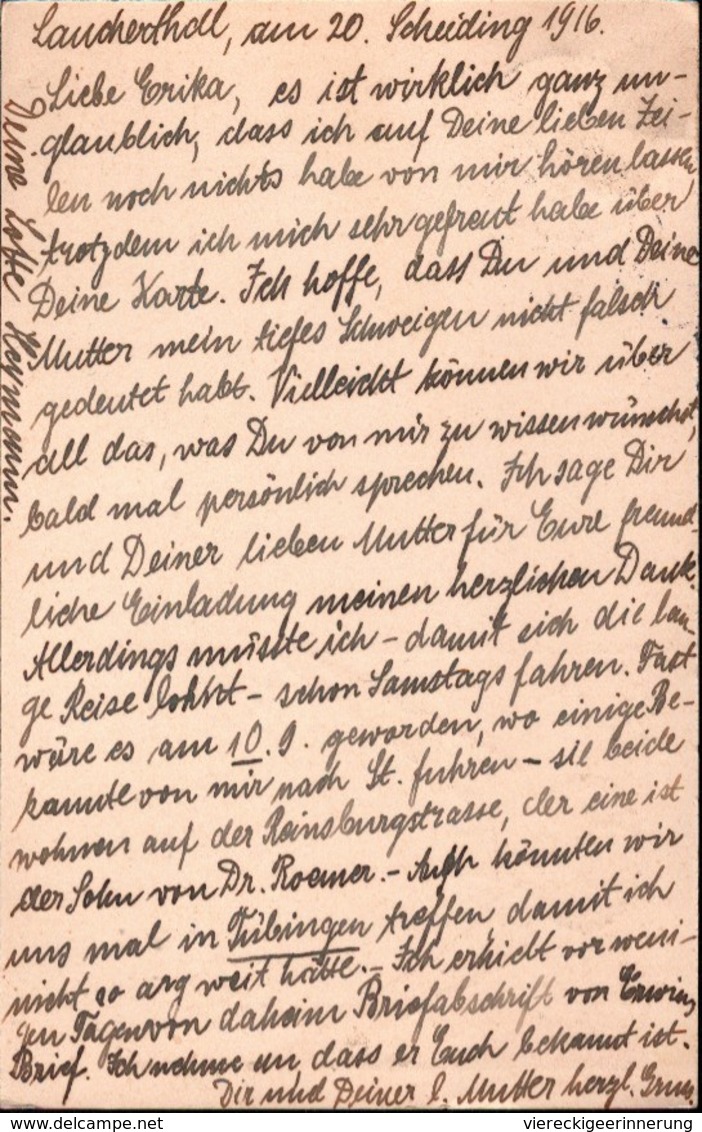 Laucherthal, am 20. Scheiding 1916.
Liebe Erika, es ist wirklich ganz un-
glaublich, dass ich auf Deine lieben Zei-
len noch nichts habe von mir hören lassen
trotzdem ich mich sehr gefreut habe über
Deine Karte. Ich hoffe, dass Du und Deine
Mutter mein tiefes Schweigen nicht falsch
gedeutet habt. Vielleicht können wir über
all das, was Du von mir zu wissen wünschst,
bald mal persönlich sprechen. Ich sage Dir
und Deiner lieben Mutter für Eure freund-
liche Einladung meinen herzlichen Dank.
Allerdings müsste ich - damit sich die lan-
ge Reise lohnt - schon Samstags fahren. Fast
wäre es am 10.9. geworden, wo einige Be-
kannte von mir nach St. fuhren - sie beide
wohnen auf der Reinsburgstrasse, der eine ist
der Sohn von Dr. Roemer. - Auch könnten wir
uns mal in Tübingen treffen, damit ich
nicht so arg weit hätte. - Ich erhielt vor weni-
gen Tagen von daheim Briefabschrift von Erwins
Brief. Ich nehme an dass er Euch bekannt ist.
Dir und Deiner l. Mutter herzl. Gruss.
Deine Lotte Heymann.
delcampe.net
viereckigeerinnerung